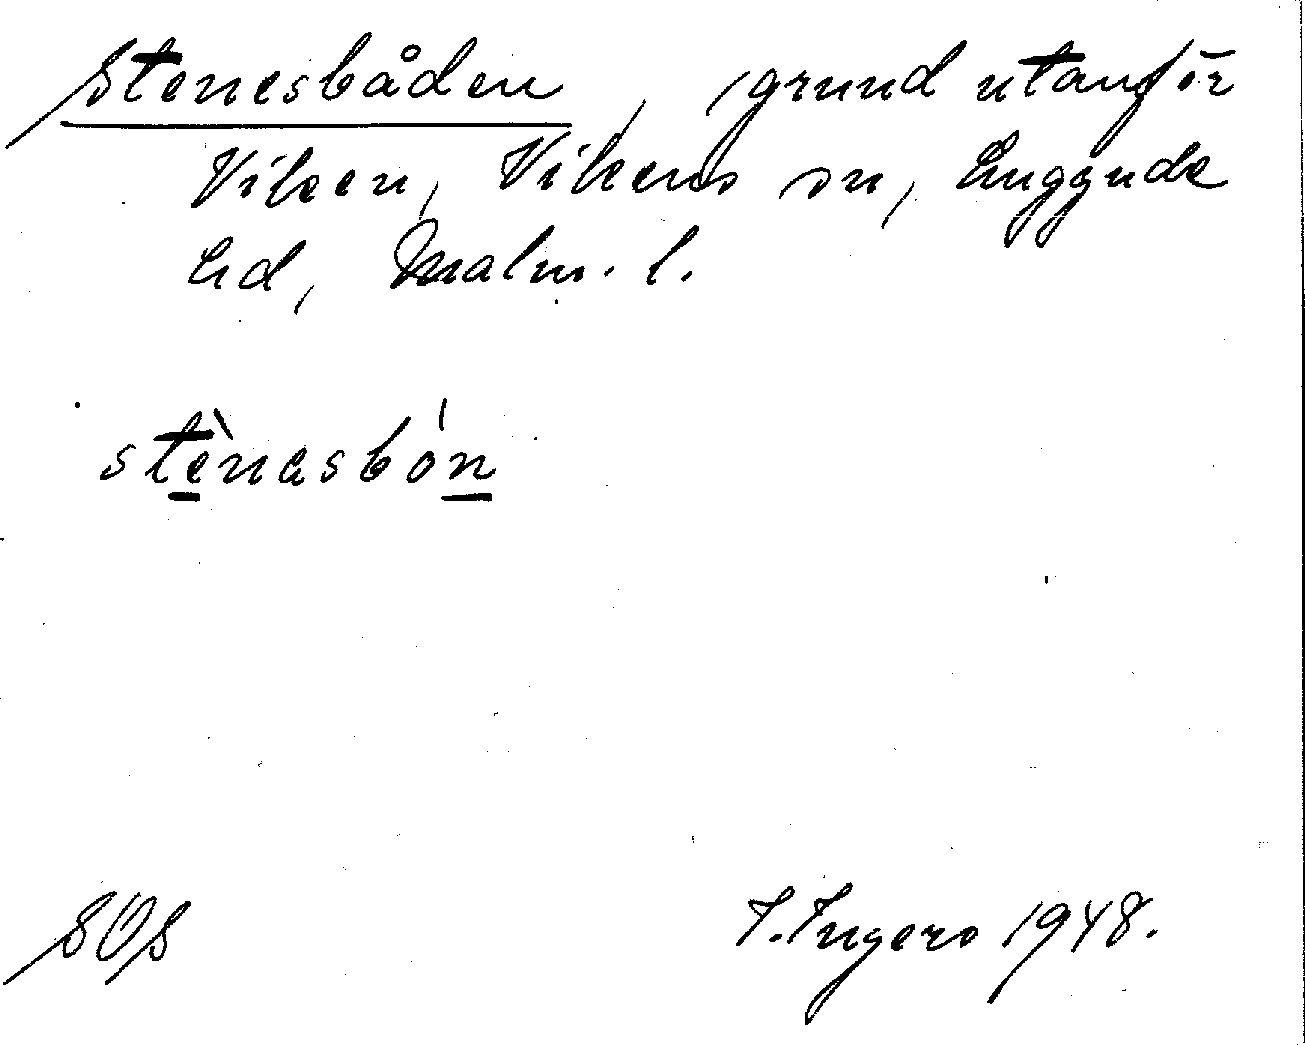 Stenesbåden, grund utanför
Viken, Vikens sn, Luggude
hd, Malm. l.
stènasbón
SOS
I. Ingers 1948.